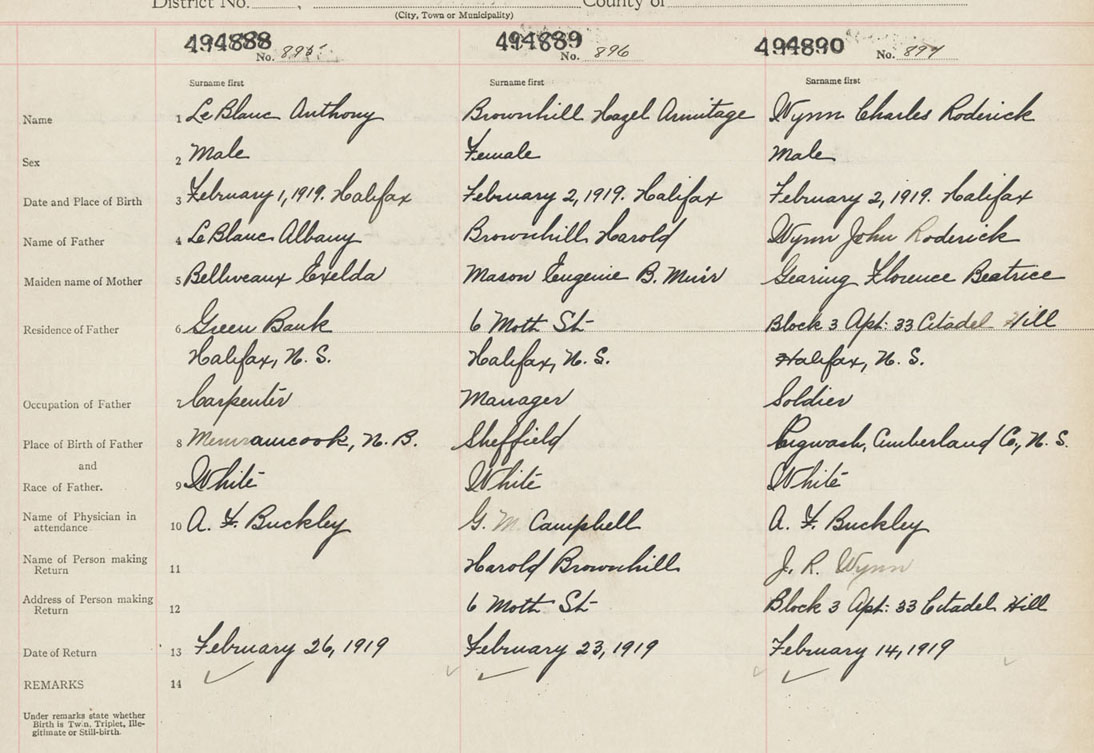 District No. , County of
(City, Town or Municipality)
494888 No. 895 494889 No. 896 494890 No. 897
Surname first Surname first Surname first
Name 1 LeBlanc Anthony Brownhill Hazel Armitage Wynn Charles Roderick
Sex 2 Male Female Male
Date and Place of Birth 3 February 1, 1919. Halifax February 2, 1919. Halifax February 2, 1919. Halifax
Name of Father 4 LeBlanc Albany Brownhill Harold Wynn John Roderick
Maiden name of Mother 5 Belliveaux Exelda Mason Eugenie B. Muir Gearing Florence Beatrice
Residence of Father 6 Green Bank 6 Moth St Block 3 Apt: 33 Citadel Hill
Halifax, N. S. Halifax, N. S. Halifax, N. S.
Occupation of Father 7 Carpenter Manager Soldier
Place of Birth of Father 8 Memramcook, N. B. Sheffield Pugwash, Cumberland Co., N. S.
and
Race of Father. 9 White White White
Name of Physician in attendance 10 A. F. Buckley G. M. Campbell A. F. Buckley
Name of Person making Return 11 Harold Brownhill J. R. Wynn
Address of Person making Return 12 6 Moth St Block 3 Apt: 33 Citadel Hill
Date of Return 13 February 26, 1919 February 23, 1919 February 14, 1919
REMARKS 14
Under remarks state whether
Birth is Twin, Triplet, Ille-
gitimate or Still-birth.